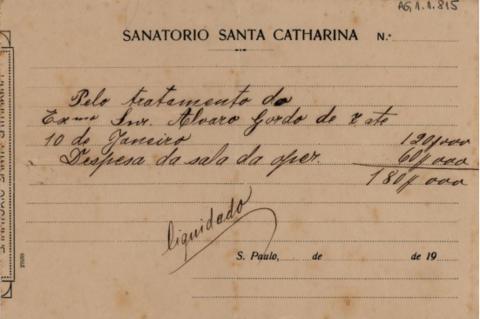 AG 1.1.815
SANATORIO SANTA CATHARINA N.º
Pelo tratamento do
Exmo Snr. Alvaro Gordo de 7 ate
10 de Janeiro 120$000
Despesa da sala da oper. 60$000
180$000
liquidado
S. Paulo, de de 19
SANATORIO SANTA CATHARINA